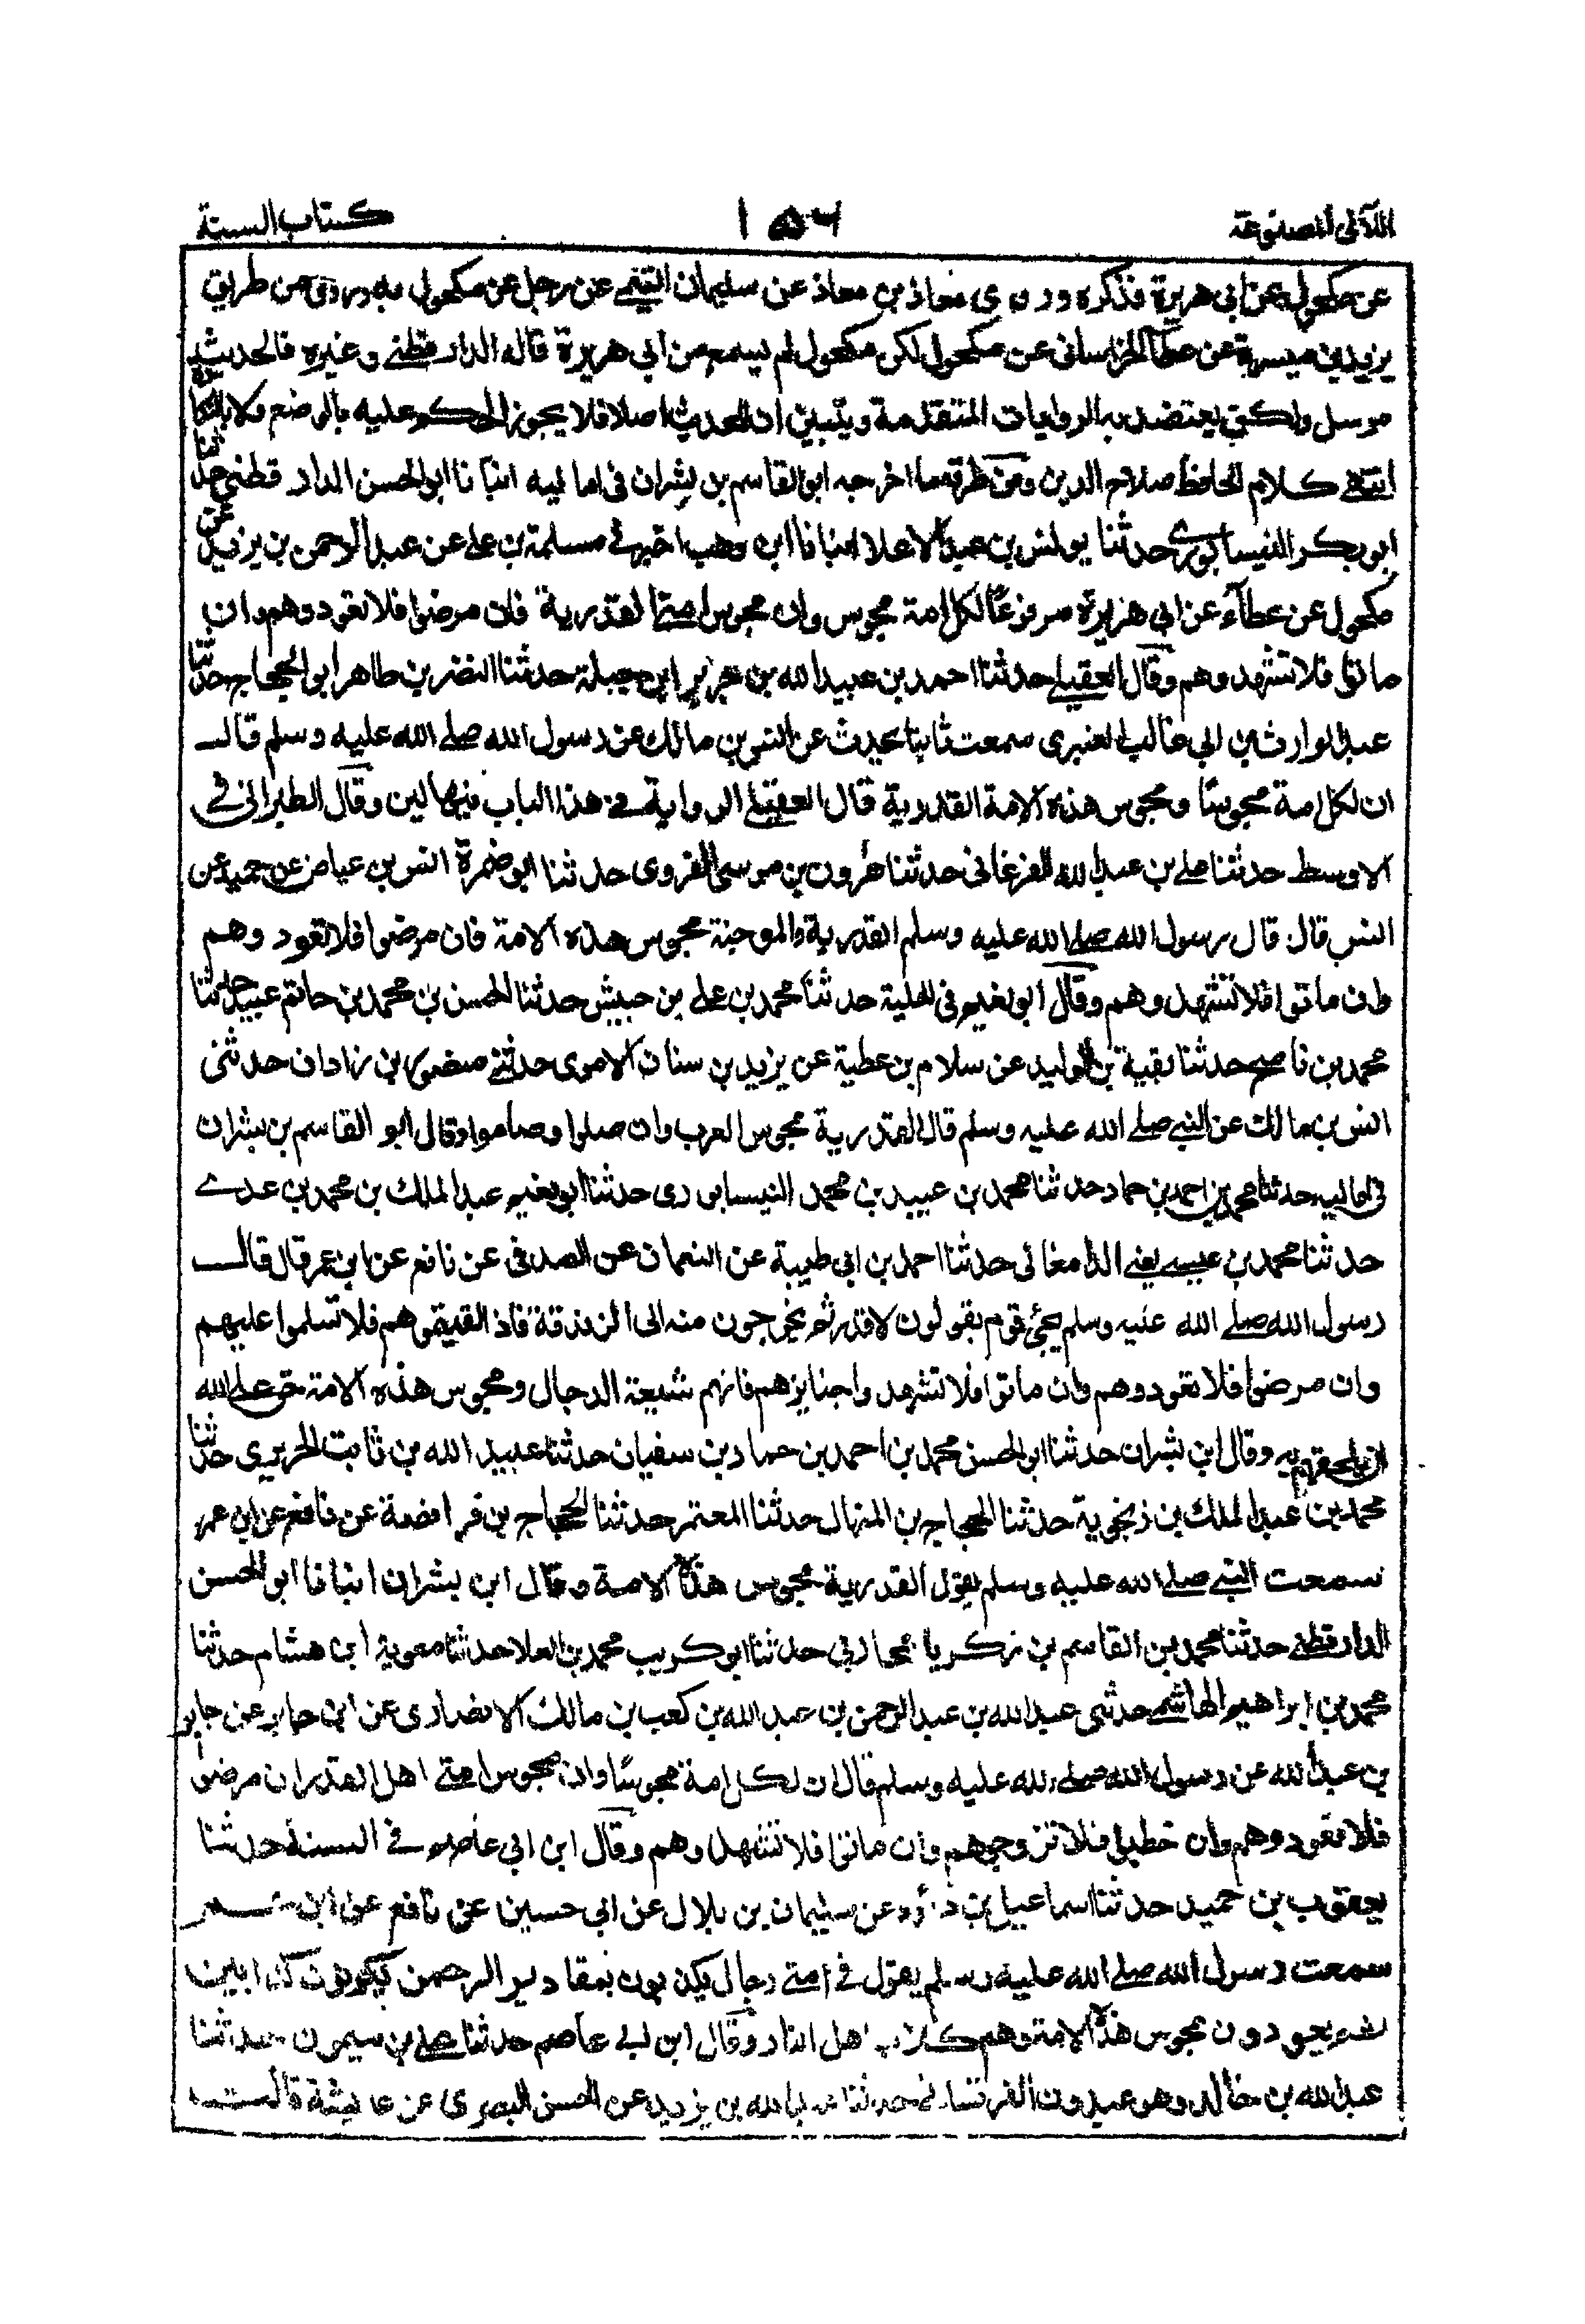 اللآلى المصنوعة ١٥٦ كتاب السنة
عن مكحول عن ابى هريرة فذكره وروى معاذ بن معاذ عن سليمان التيمى عن رجل عن مكحول به وروى من طريق
يزيد بن ميسرة عن عطآ الخراسانى عن مكحول لكن مكحول لم يسمع من ابى هريرة قاله الدارقطنى وغيره فالحديث
مرسل ولكن يعتضد بالروايات المتقدمة ويتبين ان للحديث اصلا فلا يجوز الحكم عليه بالوضع ولا بالنكارة
انتهى كلام الحافظ صلاح الدين ومن طرقه ما اخرجه ابو القاسم بن بشران فى اماليه انبانا ابو الحسن الدارقطنى حدثنا
ابو بكر النيسابورى حدثنا يونس بن عبد الاعلا انبانا ابن وهب اخبرنى مسلمة بن على عن عبد الرحمن بن يزيد عن
مكحول عن عطآء عن ابى هريرة مرفوعًا لكل امة مجوس وان مجوس امتى القدرية فان مرضوا فلا تعودوهم وان
ماتوا فلا تشهدوهم وقال العقيلى حدثنا احمد بن عبيد الله بن جرير ابن جبلة حدثنا النضر بن طاهر ابو الحجاج حدثنا
عبد الوارث بن ابى غالب العنبرى سمعت ثابتا يحدث عن انس بن مالك عن رسول الله صلى الله عليه وسلم قال
ان لكل امة مجوسًا ومجوس هذه الامة القدرية قال العقيلى الرواية فى هذا الباب فيها لين وقال الطبرانى فى
الاوسط حدثنا على بن عبد الله الفرغانى حدثنا هٰرون بن موسى الفروى حدثنا ابو ضمرة انس بن عياض عن حميد عن
انس قال قال رسول الله صلى الله عليه وسلم القدرية والمرجئة مجوس هذه الامة فان مرضوا فلا تعودوهم
وان ماتوا فلا تشهدوهم وقال ابو نعيم فى الحلية حدثنا محمد بن على بن حبيش حدثنا الحسن بن محمد بن حاتم عبيد حدثنا
محمد بن ناصح حدثنا بقية بن الوليد عن سلام بن عطية عن يزيد بن سنان الاموى حدثنى منصور بن زاذان حدثنى
انس بن مالك عن النبى صلى الله عليه وسلم قال القدرية مجوس العرب وان صلوا وصاموا وقال ابو القاسم بن بشران
فى اماليه حدثنا محمد بن احمد بن حماد حدثنا محمد بن عبيد بن محمد النيسابورى حدثنا ابو نعيم عبد الملك بن محمد بن عدى
حدثنا محمد بن عيسى يعنى الدامغانى حدثنا احمد بن ابى طيبة عن النعمان عن الصدفى عن نافع عن ابن عمر قال قال
رسول الله صلى الله عليه وسلم يجئ قوم يقولون لا قدر ثم يخرجون منه الى الزندقة فاذا لقيتموهم فلا تسلموا عليهم
وان مرضوا فلا تعودوهم وان ماتوا فلا تشهدوا جنايزهم فانهم شيعة الدجال ومجوس هذه الامة حق على الله
ان يلحقهم به وقال ابن بشران حدثنا ابو الحسن محمد بن احمد بن حماد بن سفيان حدثنا عبيد الله بن ثابت الحريرى حدثنا
محمد بن عبد الملك بن زنجوية حدثنا الحجاج بن المنهال حدثنا المعتمر حدثنا الحجاج بن فرافضة عن نافع عن ابن عمر
سمعت النبى صلى الله عليه وسلم يقول القدرية مجوس هذه الامة وقال ابن بشران انبانا ابو الحسن
الدارقطنى حدثنا محمد بن القاسم بن زكريا المحاربى حدثنا ابو كريب محمد بن العلا حدثنا معوية ابن هشام حدثنا
محمد بن ابراهيم الهاشمى حدثنى عبد الله بن عبد الرحمن بن عبد الله بن كعب بن مالك الانصارى عن ابن جابر عن جابر
بن عبد الله عن رسول الله صلى الله عليه وسلم قال ان لكل امة مجوسًا وان مجوس امتى اهل القدر ان مرضوا
فلا تعودوهم وان خطبوا فلا تزوجوهم وان ماتوا فلا تشهدوهم وقال ابن ابى عاصم فى السنة حدثنا
يعقوب بن حميد حدثنا اسماعيل بن داؤد عن سليمان بن بلال عن ابى حسين عن نافع عن ابن عمر
سمعت رسول الله صلى الله عليه وسلم يقول فى امتى رجال يكذبون بمقادير الرحمن يكونون كذابين
ثم يعودون مجوس هذه الامة وهم كلاب اهل النار وقال ابن ابى عاصم حدثنا على بن ميمون حدثنا
عبد الله بن خالد وهو عبدون القرقسانى حدثنا عبد الله بن يزيد عن الحسن البصرى عن عائشة قالت